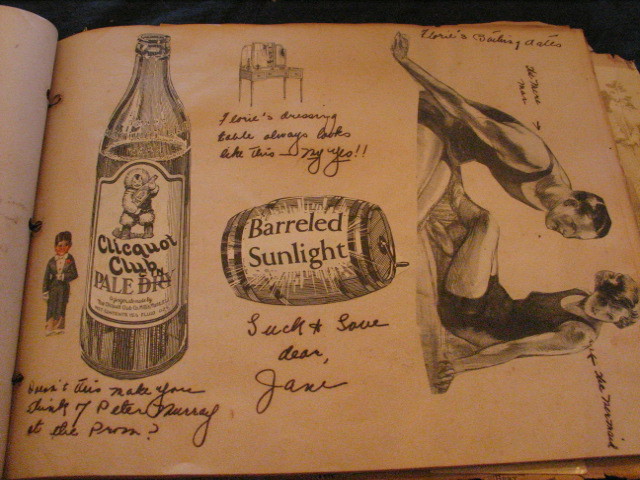 Clicquot
Club
PALE DRY
Doesn't this make you
think of Peter Murray
at the Prom?
Florie's dressing
table always looks
like this — my yes!!
Barreled
Sunlight
Luck & Love
dear,
Jane
Florie's Bathing dates
The Merman →
← The Mermaid